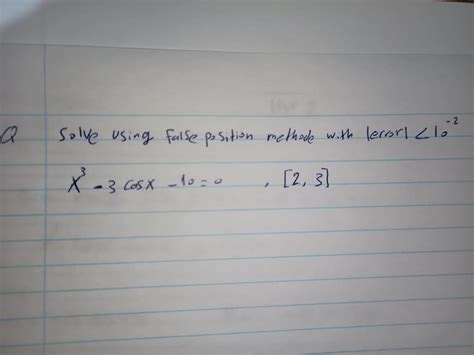 Q Solve using false position methode with |error| < 10⁻²
x³ - 3 cosx - 10 = 0 , [2, 3]